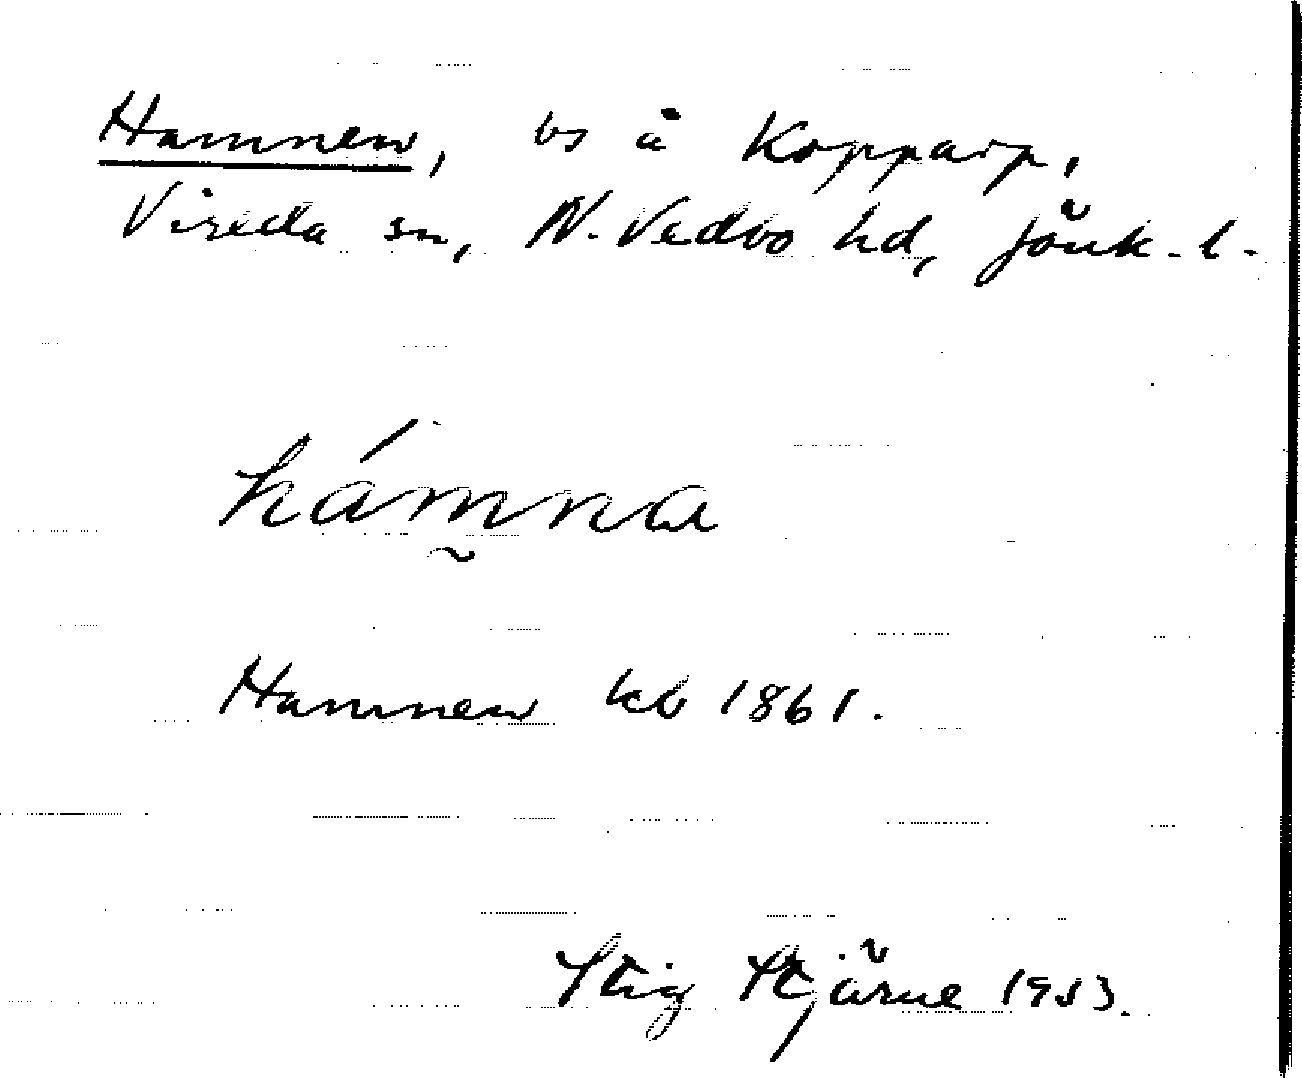 Hamnen, bs å Kopparp,
Vireda sn, N. Vedbo hd, Jönk. l.
hámna
Hamnen kb 1861.
Stig Stjärne 1953.